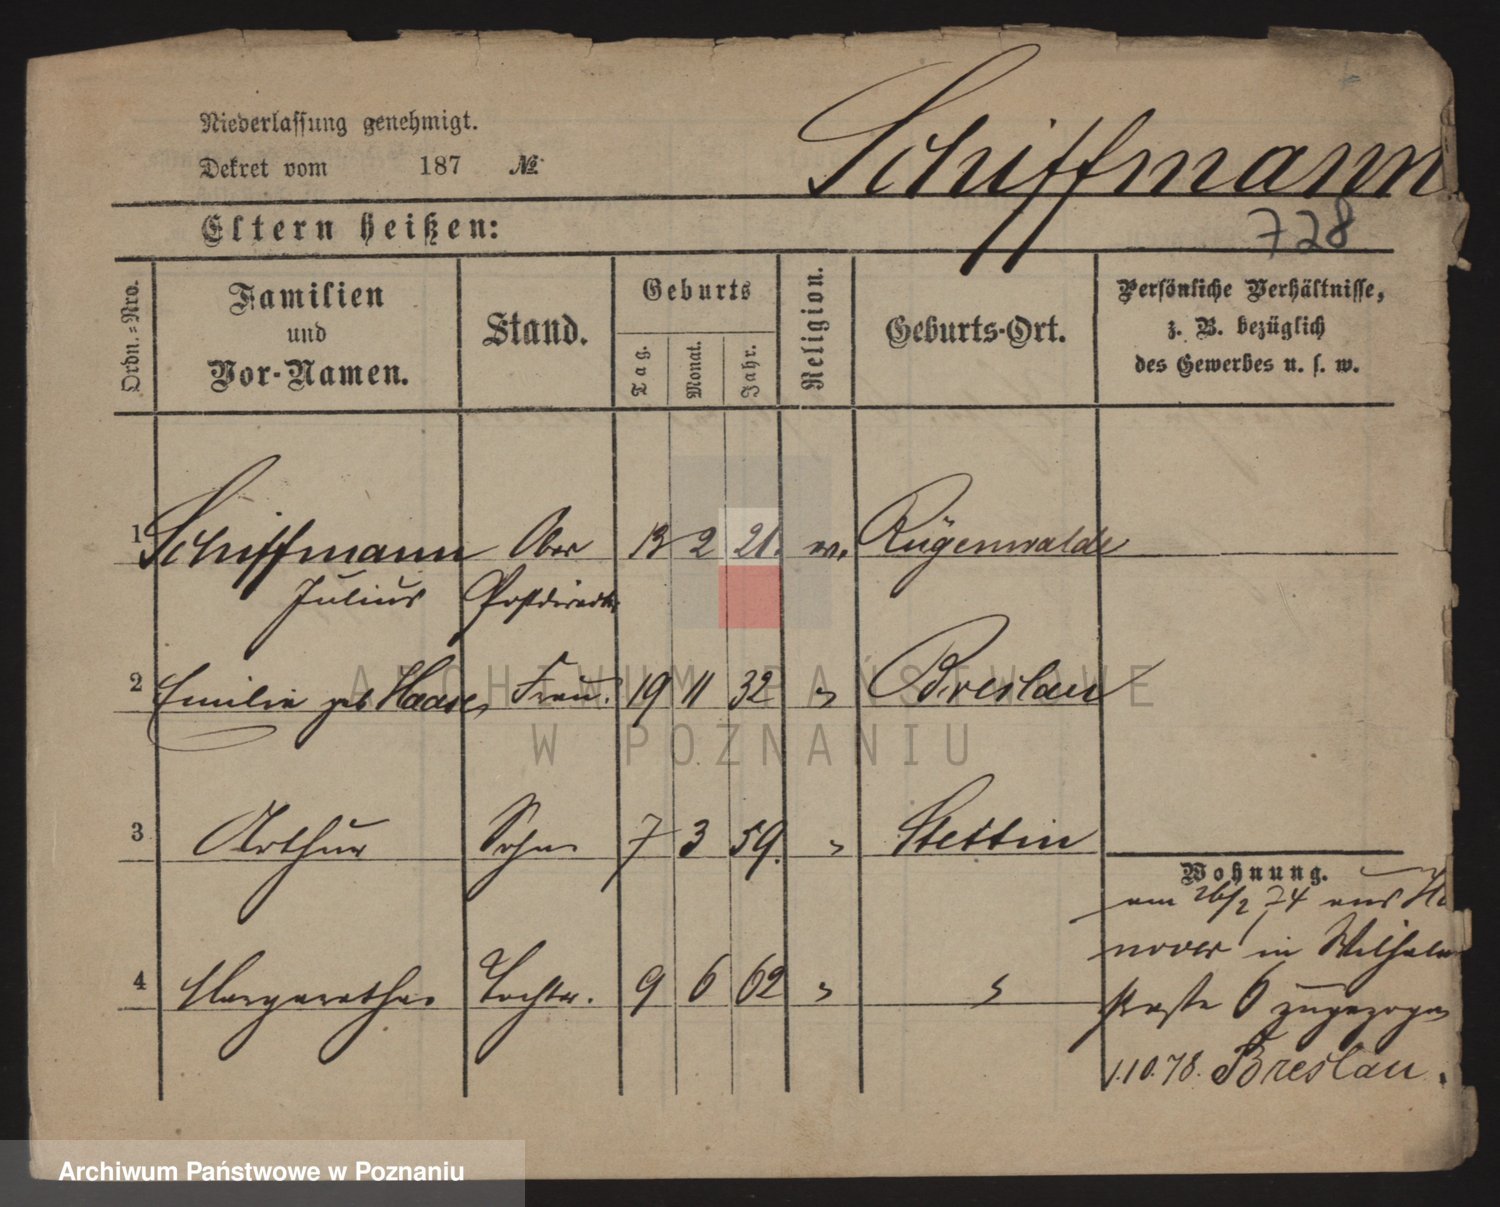 Niederlassung genehmigt.
Dekret vom 187 №
Schiffmann
728
Eltern heißen:
Ordn.-Nro.
Familien
und
Vor-Namen.
Stand.
Geburts
Tag.
Monat.
Jahr.
Religion.
Geburts-Ort.
Persönliche Verhältnisse,
z. B. bezüglich
des Gewerbes u. s. w.
1 Schiffmann Ober 13 2 21. ev. Rügenwalde
Julius Postdirector
2 Emilie geb Haase, Frau. 19 11 32 " Breslau
3 Arthur Sohn 7 3 59. " Stettin
4 Margarethe Tochter. 9 6 62 " "
Wohnung.
am 26/2 74 aus Ha
nover in Wilhelm
straße 6 zugezogen
1.10.78. Breslau.
ARCHIWUM PAŃSTWOWE
W POZNANIU
Archiwum Państwowe w Poznaniu